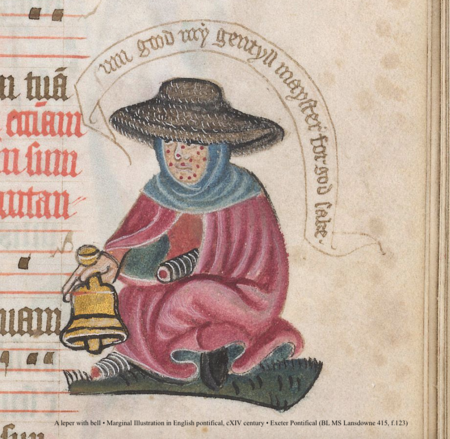 sum good my gentyll mayster for god sake.
n tuā
etiam
n sum
utan
uiam
sum
A leper with bell • Marginal Illustration in English pontifical, cXIV century • Exeter Pontifical (BL MS Lansdowne 415, f.123)